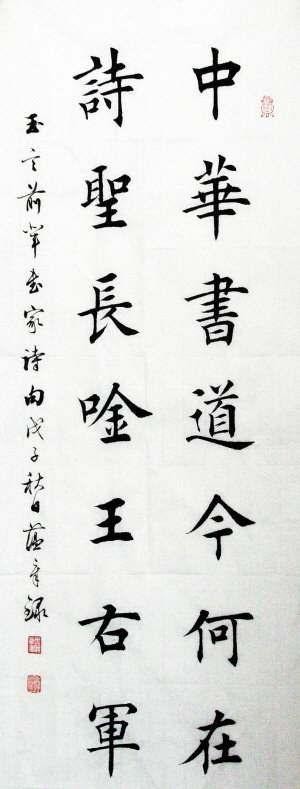 中華書道今何在
詩聖長唫王右軍
玉言前輩書家詩句戊子秋日章錄